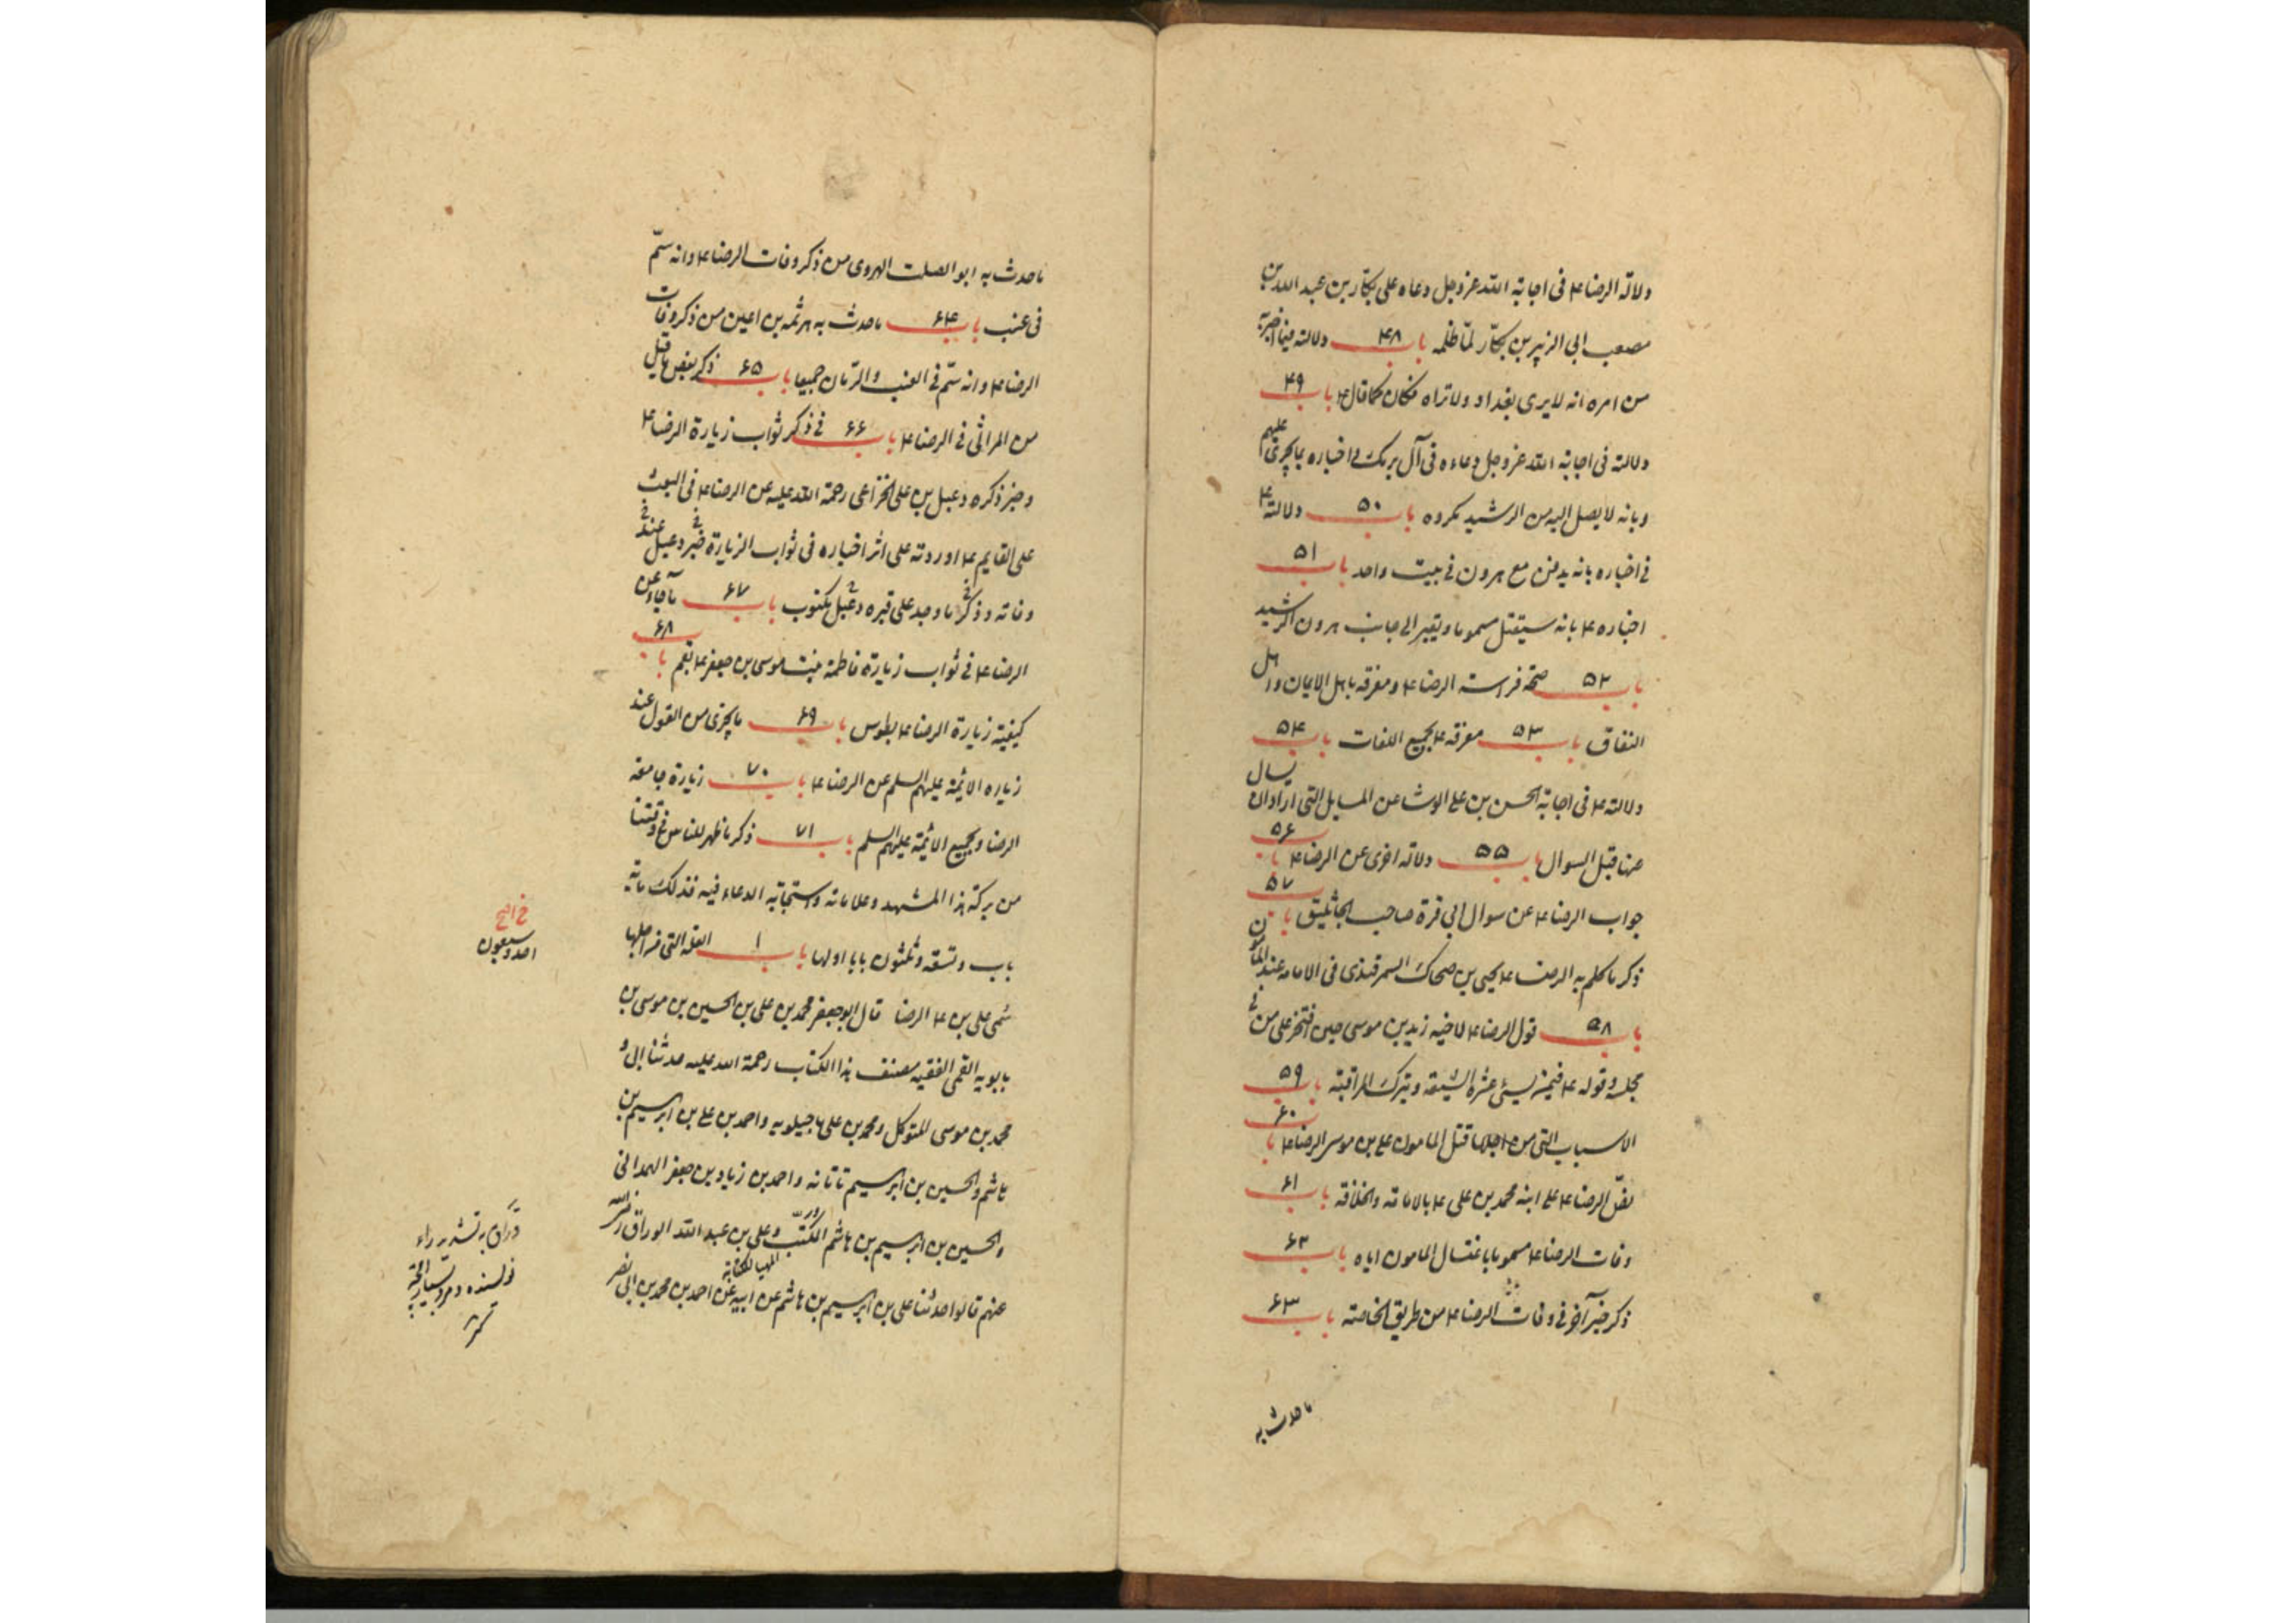 دلالة الرضا ع فى اجابة الله عز وجل دعاه على بكار بن عبد الله بن
مصعب ابى الزبير بن بكار لما ظلمه باب ۴۸ دلالته فيما اخبر به
من امره انه لا يرى بغداد ولا تراه فكان كما قال ع باب ۴۹
دلالته فى اجابة الله عز وجل دعاءه فى آل برمك و اخباره بما يجرى عليهم
وبانه لا يصل اليه من الرشيد مكروه باب ۵۰ دلالته ع
فى اخباره بانه يدفن مع هرون فى بيت واحد باب ۵۱
اخباره ع بانه سيقتل مسموما ويقبر الى جانب هرون الرشيد
باب ۵۲ صحة فراسة الرضا ع ومعرفته باهل الايمان واهل
النفاق باب ۵۳ معرفته ع بجميع اللغات باب ۵۴
دلالته ع فى اجابة الحسن بن على الوشا عن المسايل التى اراد ان يسال
عنها قبل السوال باب ۵۵ دلالة اخرى عن الرضا ع باب ۵۶
جواب الرضا ع عن سوال ابى قرة صاحب الجاثليق باب ۵۷
ذكر ما كلم به الرضا ع يحيى بن ضحاك السمرقندى فى الامامة عند المأمون
باب ۵۸ قول الرضا ع لاخيه زيد بن موسى حين افتخر على من فى
مجلسه وقوله ع فيمن يسئ عشرة الشيعة ويترك المراقبة باب ۵۹
الاسباب التى من اجلها قتل المامون على بن موسى الرضا ع باب ۶۰
نص الرضا ع على ابنه محمد بن على ع بالامامة والخلافة باب ۶۱
وفات الرضا ع مسموما باغتيال المامون اياه باب ۶۲
ذكر خبر آخر فى وفات الرضا ع من طريق الخاصة باب ۶۳
ما حدث به
ما حدث به ابو الصلت الهروى من ذكر وفات الرضا ع وانه سم
فى عنب باب ۶۴ ما حدث به هرثمه بن اعين من ذكر وفات
الرضا ع وانه سم فى العنب والرمان جميعا باب ۶۵ ذكر بعض ما قيل
من المراثى فى الرضا ع باب ۶۶ فى ذكر ثواب زيارة الرضا ع
وخبر ذكره دعبل بن على الخزاعى رحمة الله عليه عن الرضا ع فى البحث
على القايم ع اوردته على اثر اخباره فى ثواب الزيارة خبر دعبل عند
وفاته وذكر ما وجد على قبره دعبل مكتوب باب ۶۷ ما جاء عن
الرضا ع فى ثواب زيارة فاطمة بنت موسى بن جعفر ع بقم باب ۶۸
كيفية زيارة الرضا ع بطوس باب ۶۹ ما يجزى من القول عند
زياره الائمة عليهم السلم عن الرضا ع باب ۷۰ زيارة جامعة
الرضا ولجميع الائمة عليهم السلم باب ۷۱ ذكر ما ظهر للناس فى وقتنا
من بركة هذا المشهد وعلاماته واستجابة الدعاء فيه فذلك مائة
باب وتسعة وثلثون بابا اولها باب ۱ العلة التى من اجلها
سمى على بن ع الرضا قال ابو جعفر محمد بن على بن الحسين بن موسى بن
بابويه القمى الفقيه مصنف هذا الكتاب رحمة الله عليه حدثنا ابى و
محمد بن موسى المتوكل ومحمد بن على ماجيلويه واحمد بن على بن ابرهيم بن
هاشم والحسين بن ابرهيم تاتانه واحمد بن زياد بن جعفر الهمدانى
والحسين بن ابرهيم بن هاشم المكتب وعلى بن عبد الله الوراق رضى الله
عنهم قالوا حدثنا على بن ابرهيم بن هاشم عن ابيه عن احمد بن محمد بن ابى نصر
احد وسبعون
وراق به تشديد راء